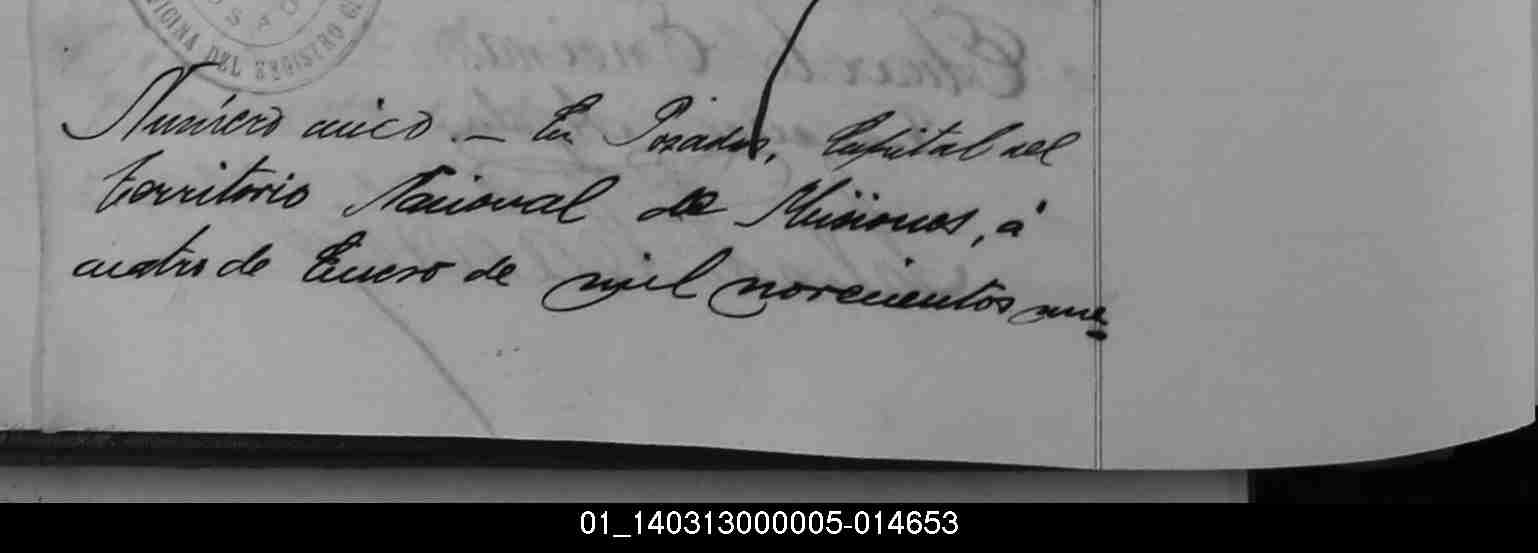 OSAD
OFICINA DEL REGISTRO CI
Número cinco. — En Posadas, Capital del
territorio Nacional de Misiones, á
cuatro de Enero de mil novecientos nue
01_140313000005-014653